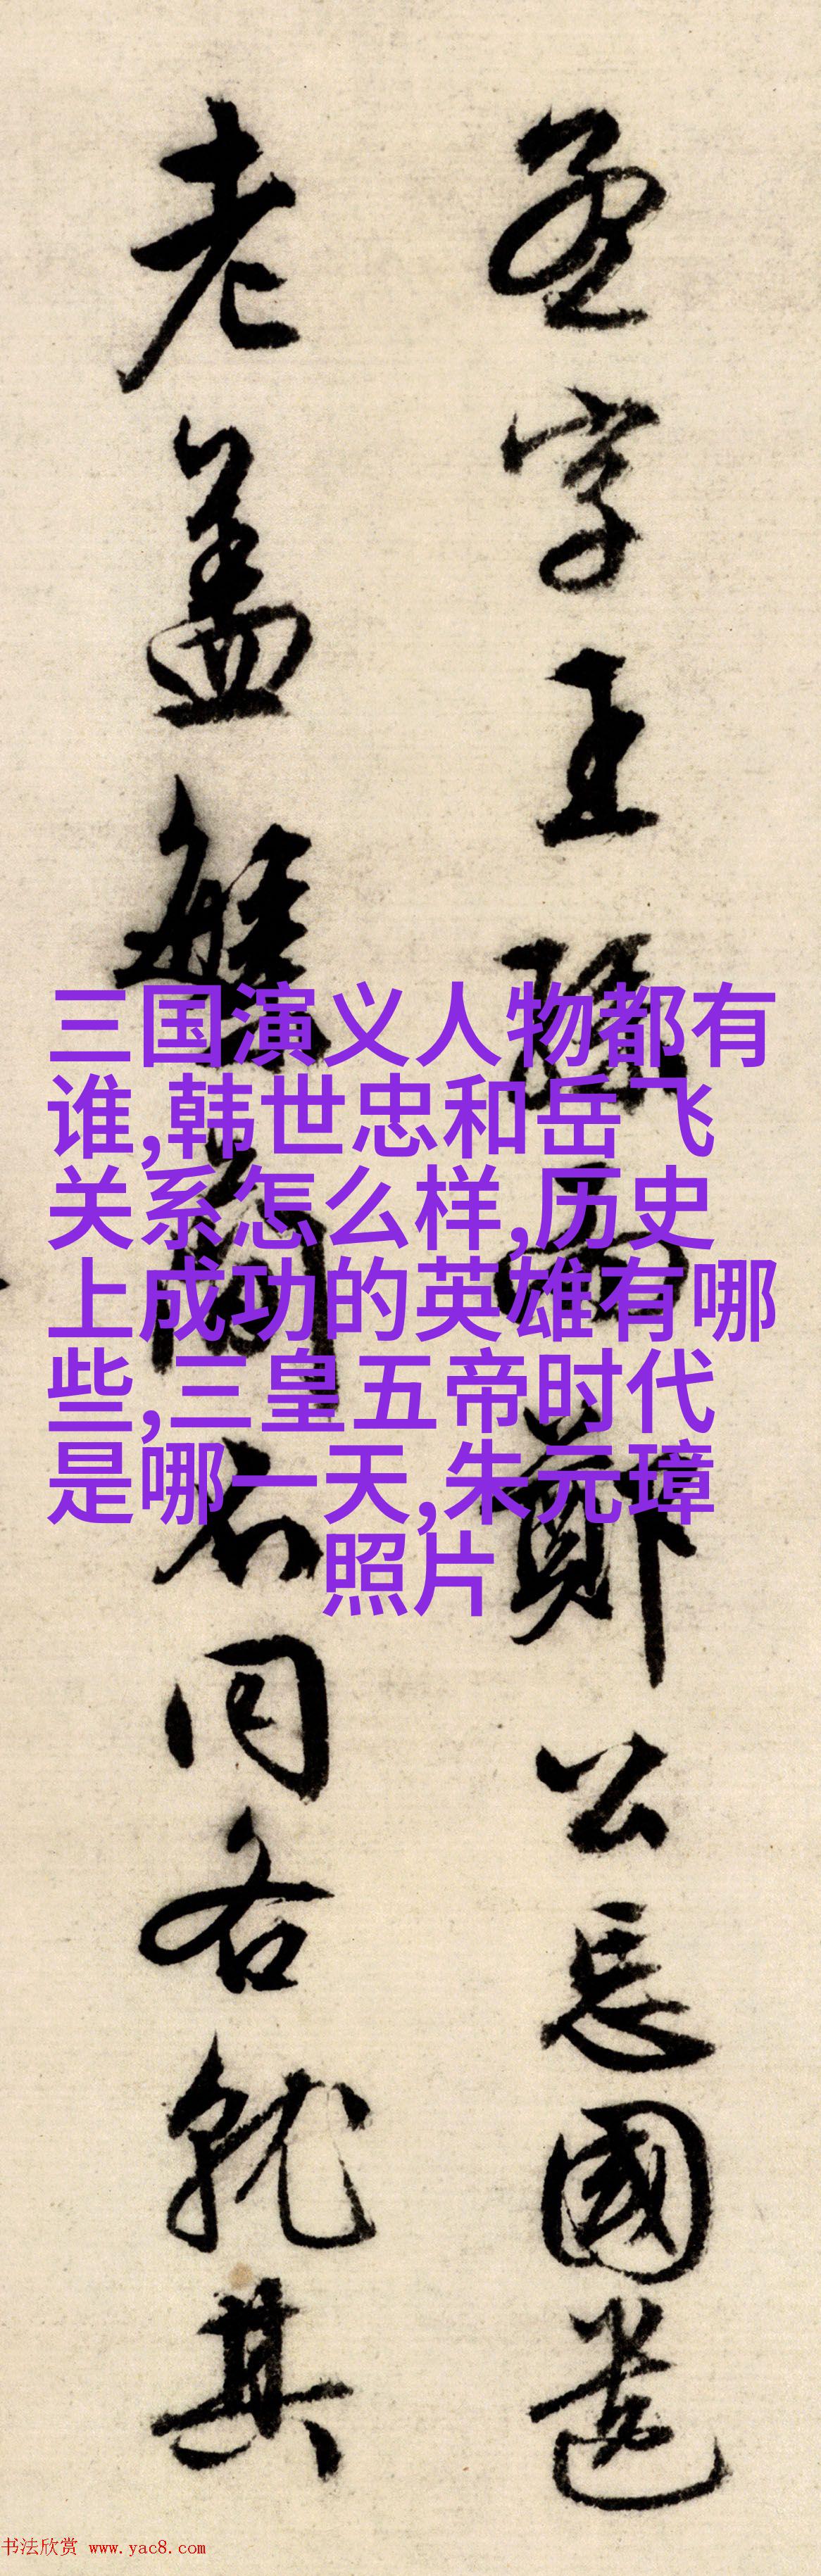 三国演义人物都有
谁,韩世忠和岳飞
关系怎么样,历史
上成功的英雄有哪
些,三皇五帝时代
是哪一天,朱元璋
照片
字王 鄭公忘國
老盖 同各就其
书法欣赏 www.yac8.com